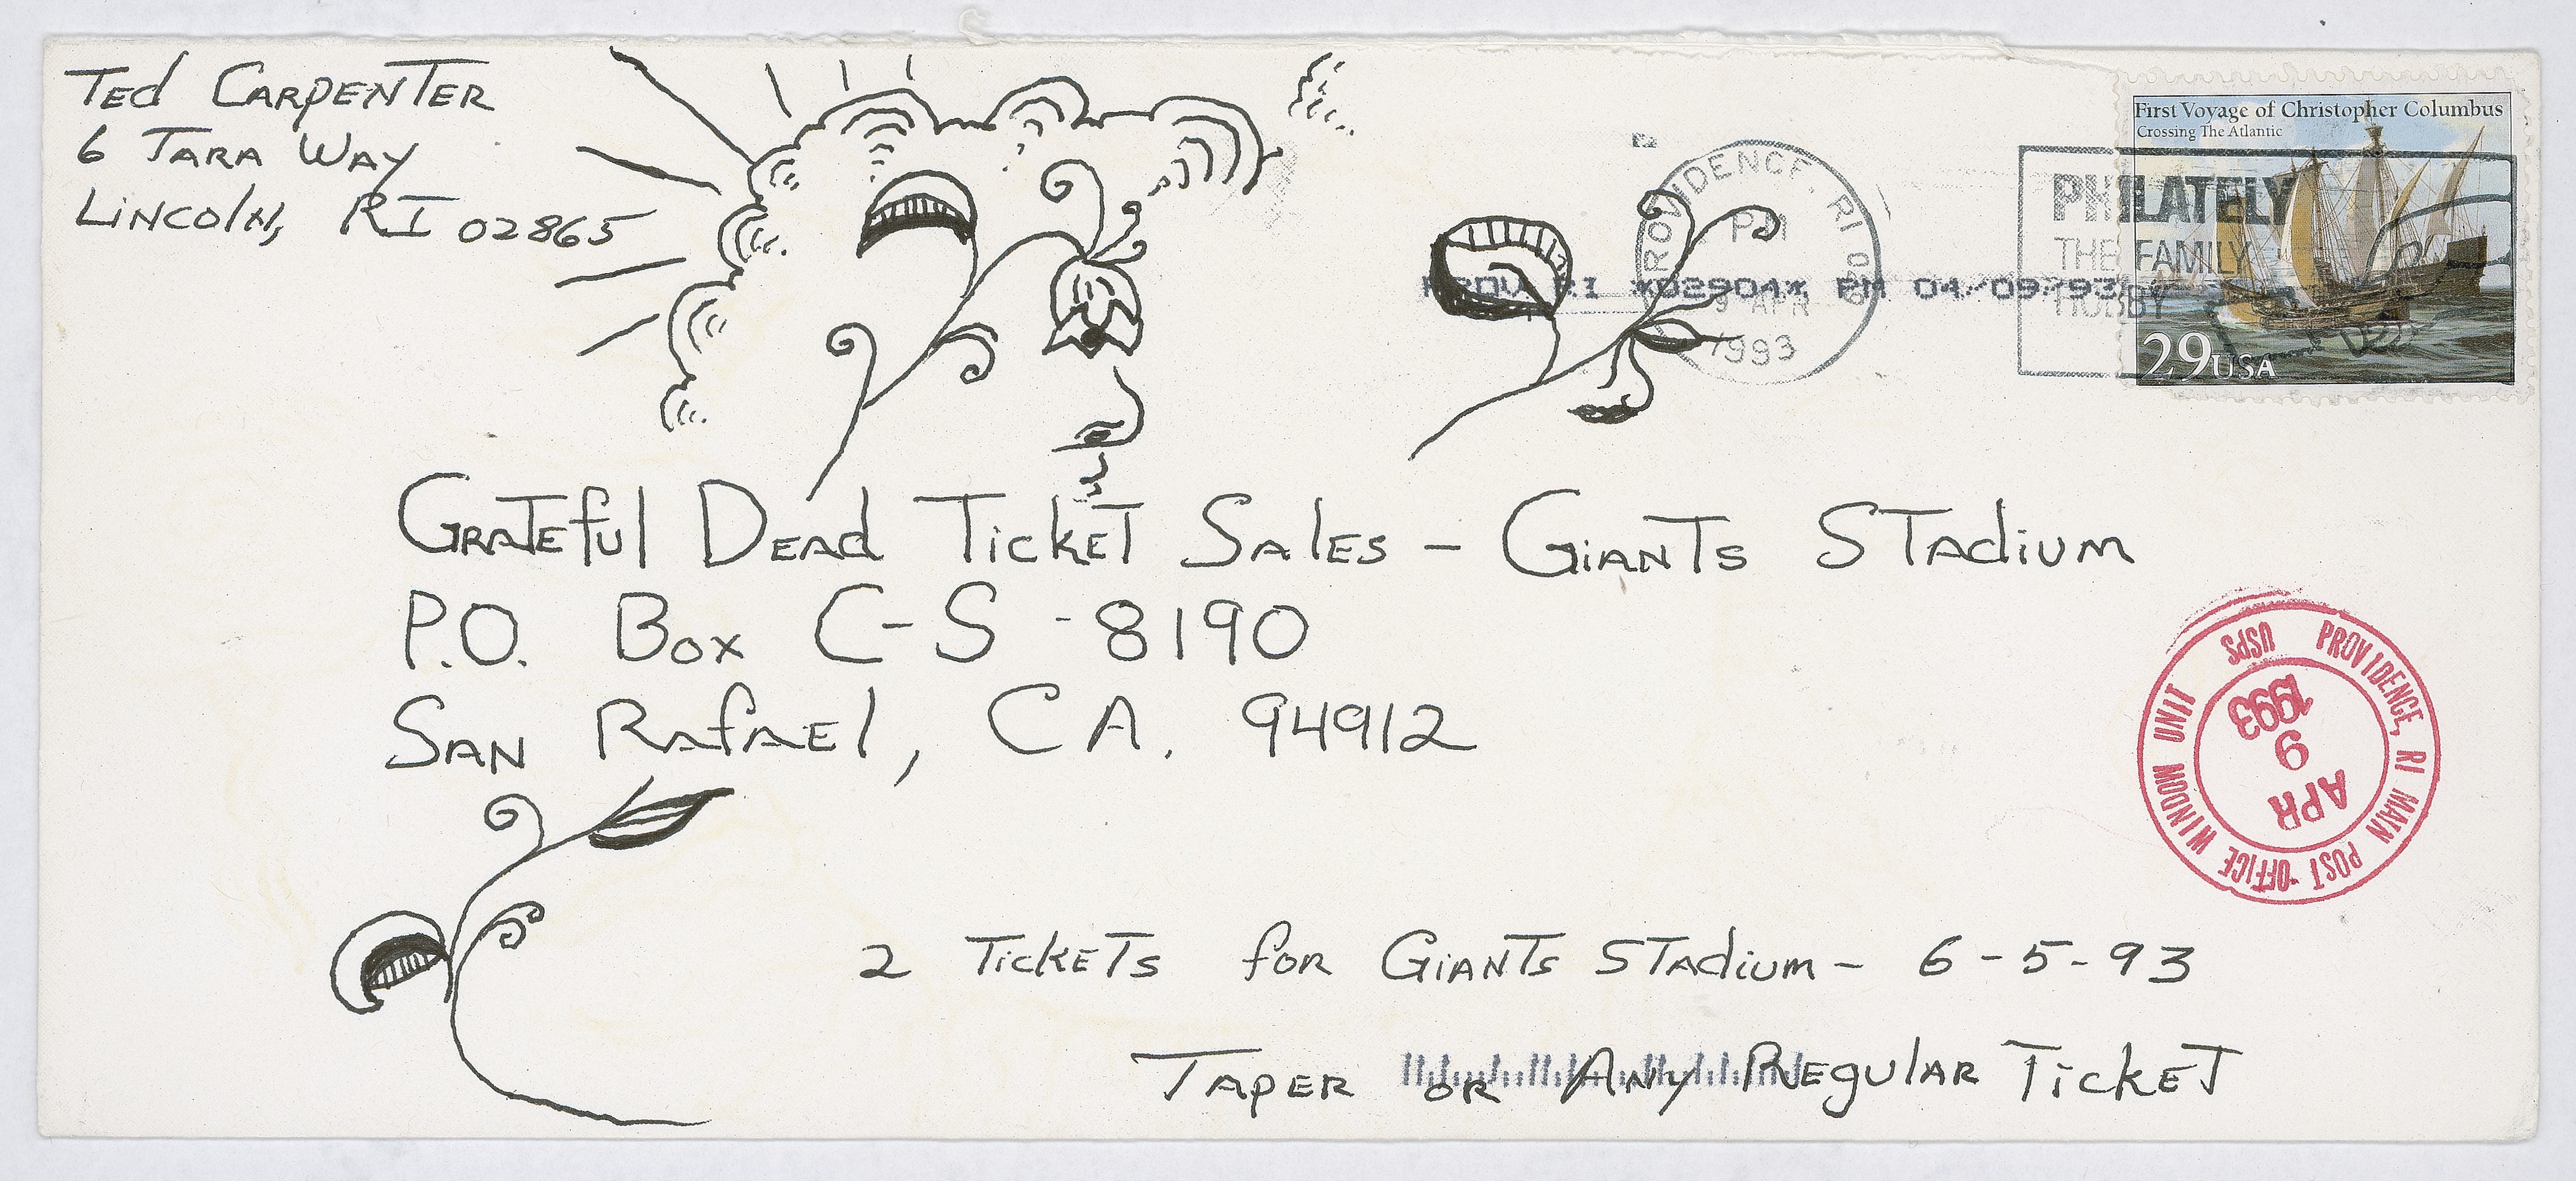 Ted Carpenter
6 Tara Way
Lincoln, RI 02865
First Voyage of Christopher Columbus
Crossing The Atlantic
29 USA
PROVIDENCE, RI
PM
9 APR
1993
PHILATELY
THE FAMILY
HOBBY
PROV RI *02904* PM 04/09/93
Grateful Dead Ticket Sales - Giants Stadium
P.O. Box C-S-8190
San Rafael, CA. 94912
PROVIDENCE, RI MAIN POST OFFICE WINDOW UNIT
USPS
APR
9
1993
2 Tickets for Giants Stadium - 6-5-93
Taper or Any Regular Ticket